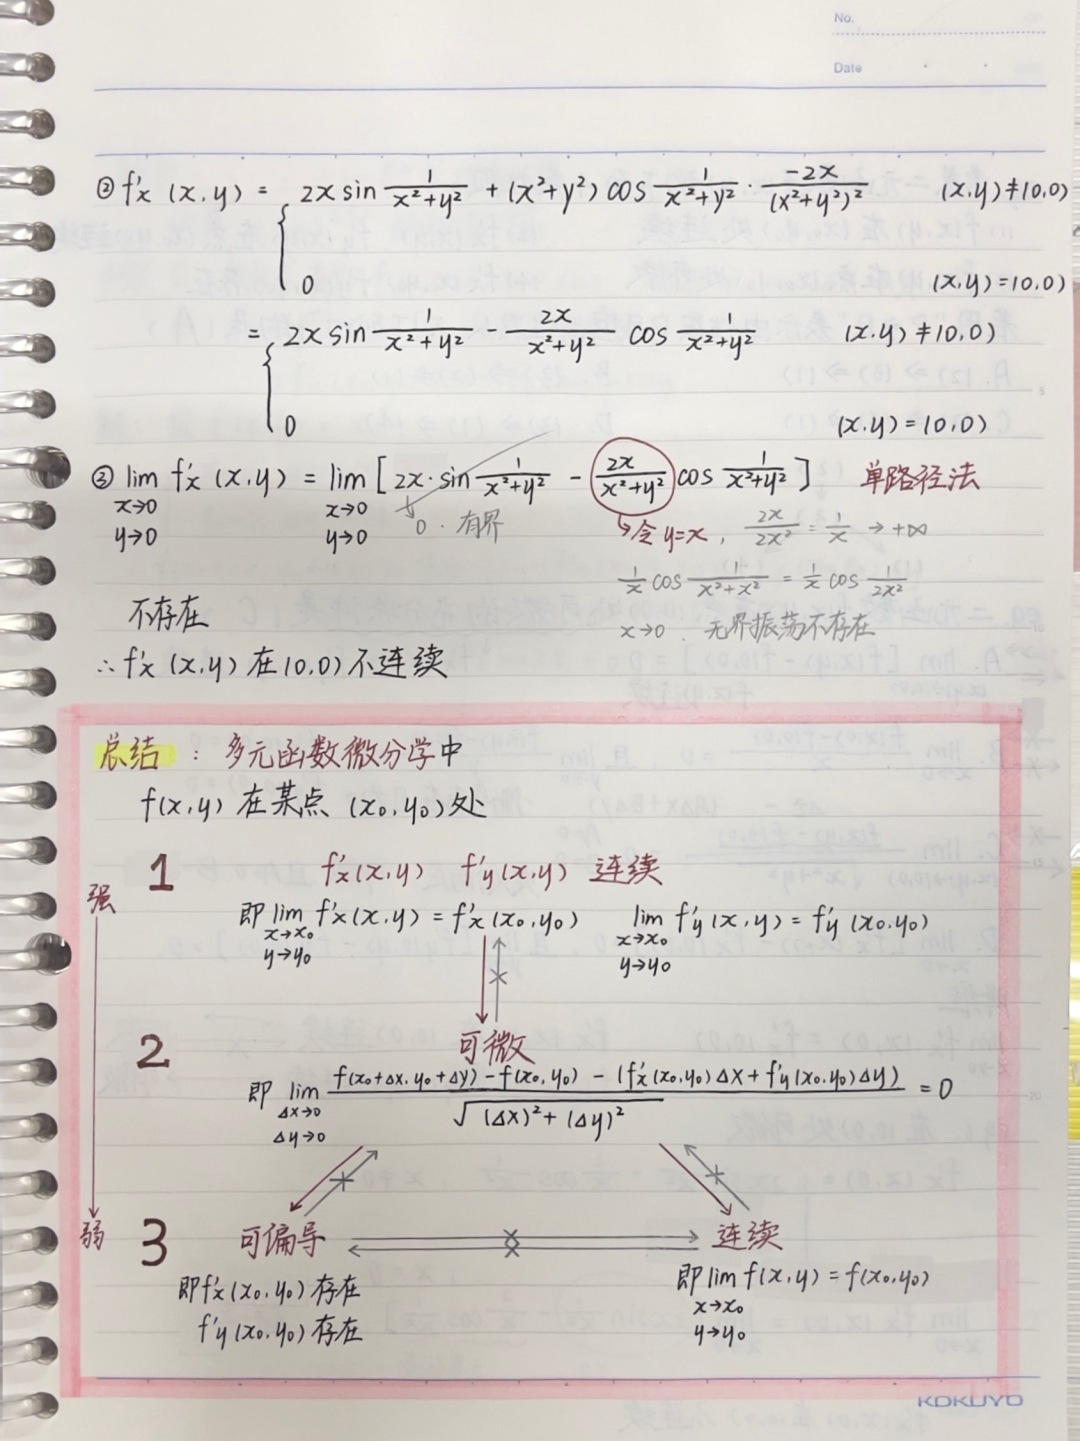 No.
Date
② f'x (x,y) = { 2x sin 1/(x²+y²) + (x²+y²) cos 1/(x²+y²) · -2x/(x²+y²)² (x,y)≠(0,0)
0 (x,y)=(0,0)
= { 2x sin 1/(x²+y²) - 2x/(x²+y²) cos 1/(x²+y²) (x,y)≠(0,0)
0 (x,y)=(0,0)
③ lim x→0 y→0 f'x (x,y) = lim x→0 y→0 [ 2x·sin 1/(x²+y²) - 2x/(x²+y²) cos 1/(x²+y²) ] 单路径法
0 · 有界
令 y=x, 2x/2x² = 1/x → +∞
1/x cos 1/(x²+x²) = 1/x cos 1/2x²
不存在
x→0 . 无界振荡不存在
∴ f'x (x,y) 在 (0,0) 不连续
总结 : 多元函数微分学中
f(x,y) 在某点 (x₀,y₀) 处
1 f'x(x,y) f'y(x,y) 连续
强
即 lim x→x₀ y→y₀ f'x(x,y) = f'x(x₀,y₀) lim x→x₀ y→y₀ f'y(x,y) = f'y(x₀,y₀)
2 可微
即 lim Δx→0 Δy→0 f(x₀+Δx,y₀+Δy) - f(x₀,y₀) - (f'x(x₀,y₀)Δx + f'y(x₀,y₀)Δy) / √(Δx)²+(Δy)² = 0
弱
3 可偏导 连续
即 f'x(x₀,y₀) 存在
f'y(x₀,y₀) 存在
即 lim x→x₀ y→y₀ f(x,y) = f(x₀,y₀)
KOKUYO